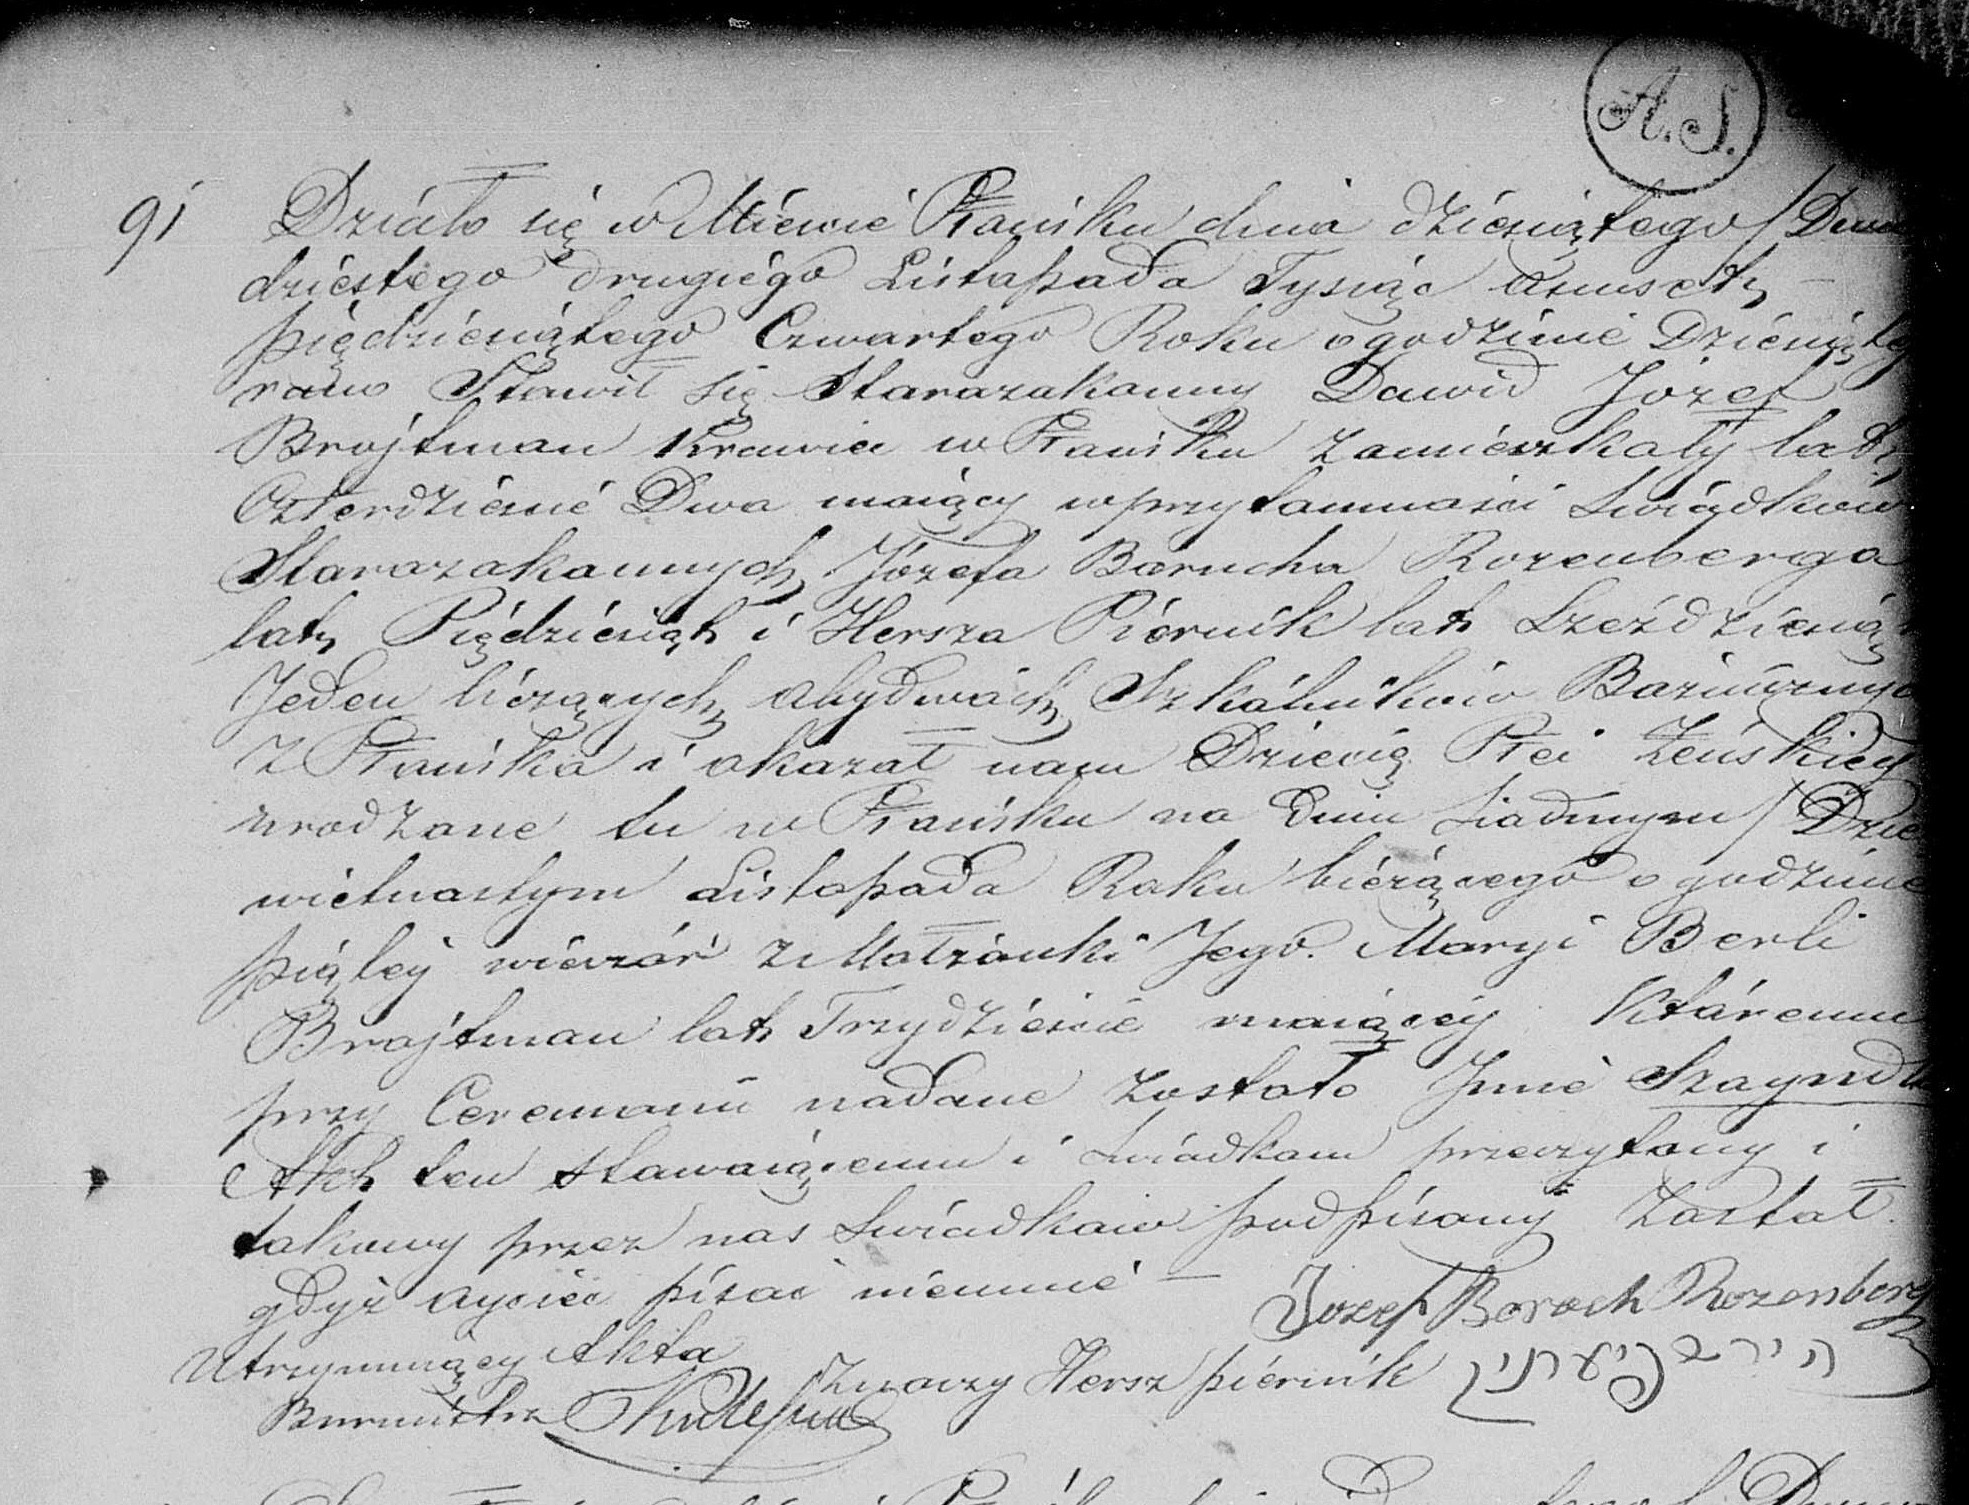 A. S.
91 Działo się w Mieście Płońsku dnia dziesiątego / Dwu
dziestego drugiego Listopada Tysiąc ośmset
piędziesiątego Czwartego Roku o godzinie Dziesiątey
rano Stawił się Starozakonny Dawid Józef
Brojtman Krawiec w Płońsku zamieszkały lat
Czterdzieście Dwa maiący w przytomności Swiadków
Starozakonnych Józefa Borucha Rozenberga
lat Piędziesiąt i Hersza Piernik lat Szeździesiąt
Jeden liczących obydwóch Szkolników Bożnicznych
z Płońska i okazał nam Dziecię Płci Żeńskiey
urodzone tu w Płońsku na Dniu Siódmym / Dzie
wietnastym Listopada Roku bieżącego o godzinie
piątey wieczór z Małżonki Jego. Maryi Berli
Brojtman lat Trzydzieście maiącey któremu
przy Ceremonii nadane zostało Jmie Szayndla
Akt ten stawaiącemu i Swiadkom przeczytany i
takowy przez nas Swiadków podpisany Został.
gdyż oyciec pisać nieumie —
Jozef Boroch Rozenberg
Utrzymuiący Akta
Znaczy Hersz piernik
Burmistrz